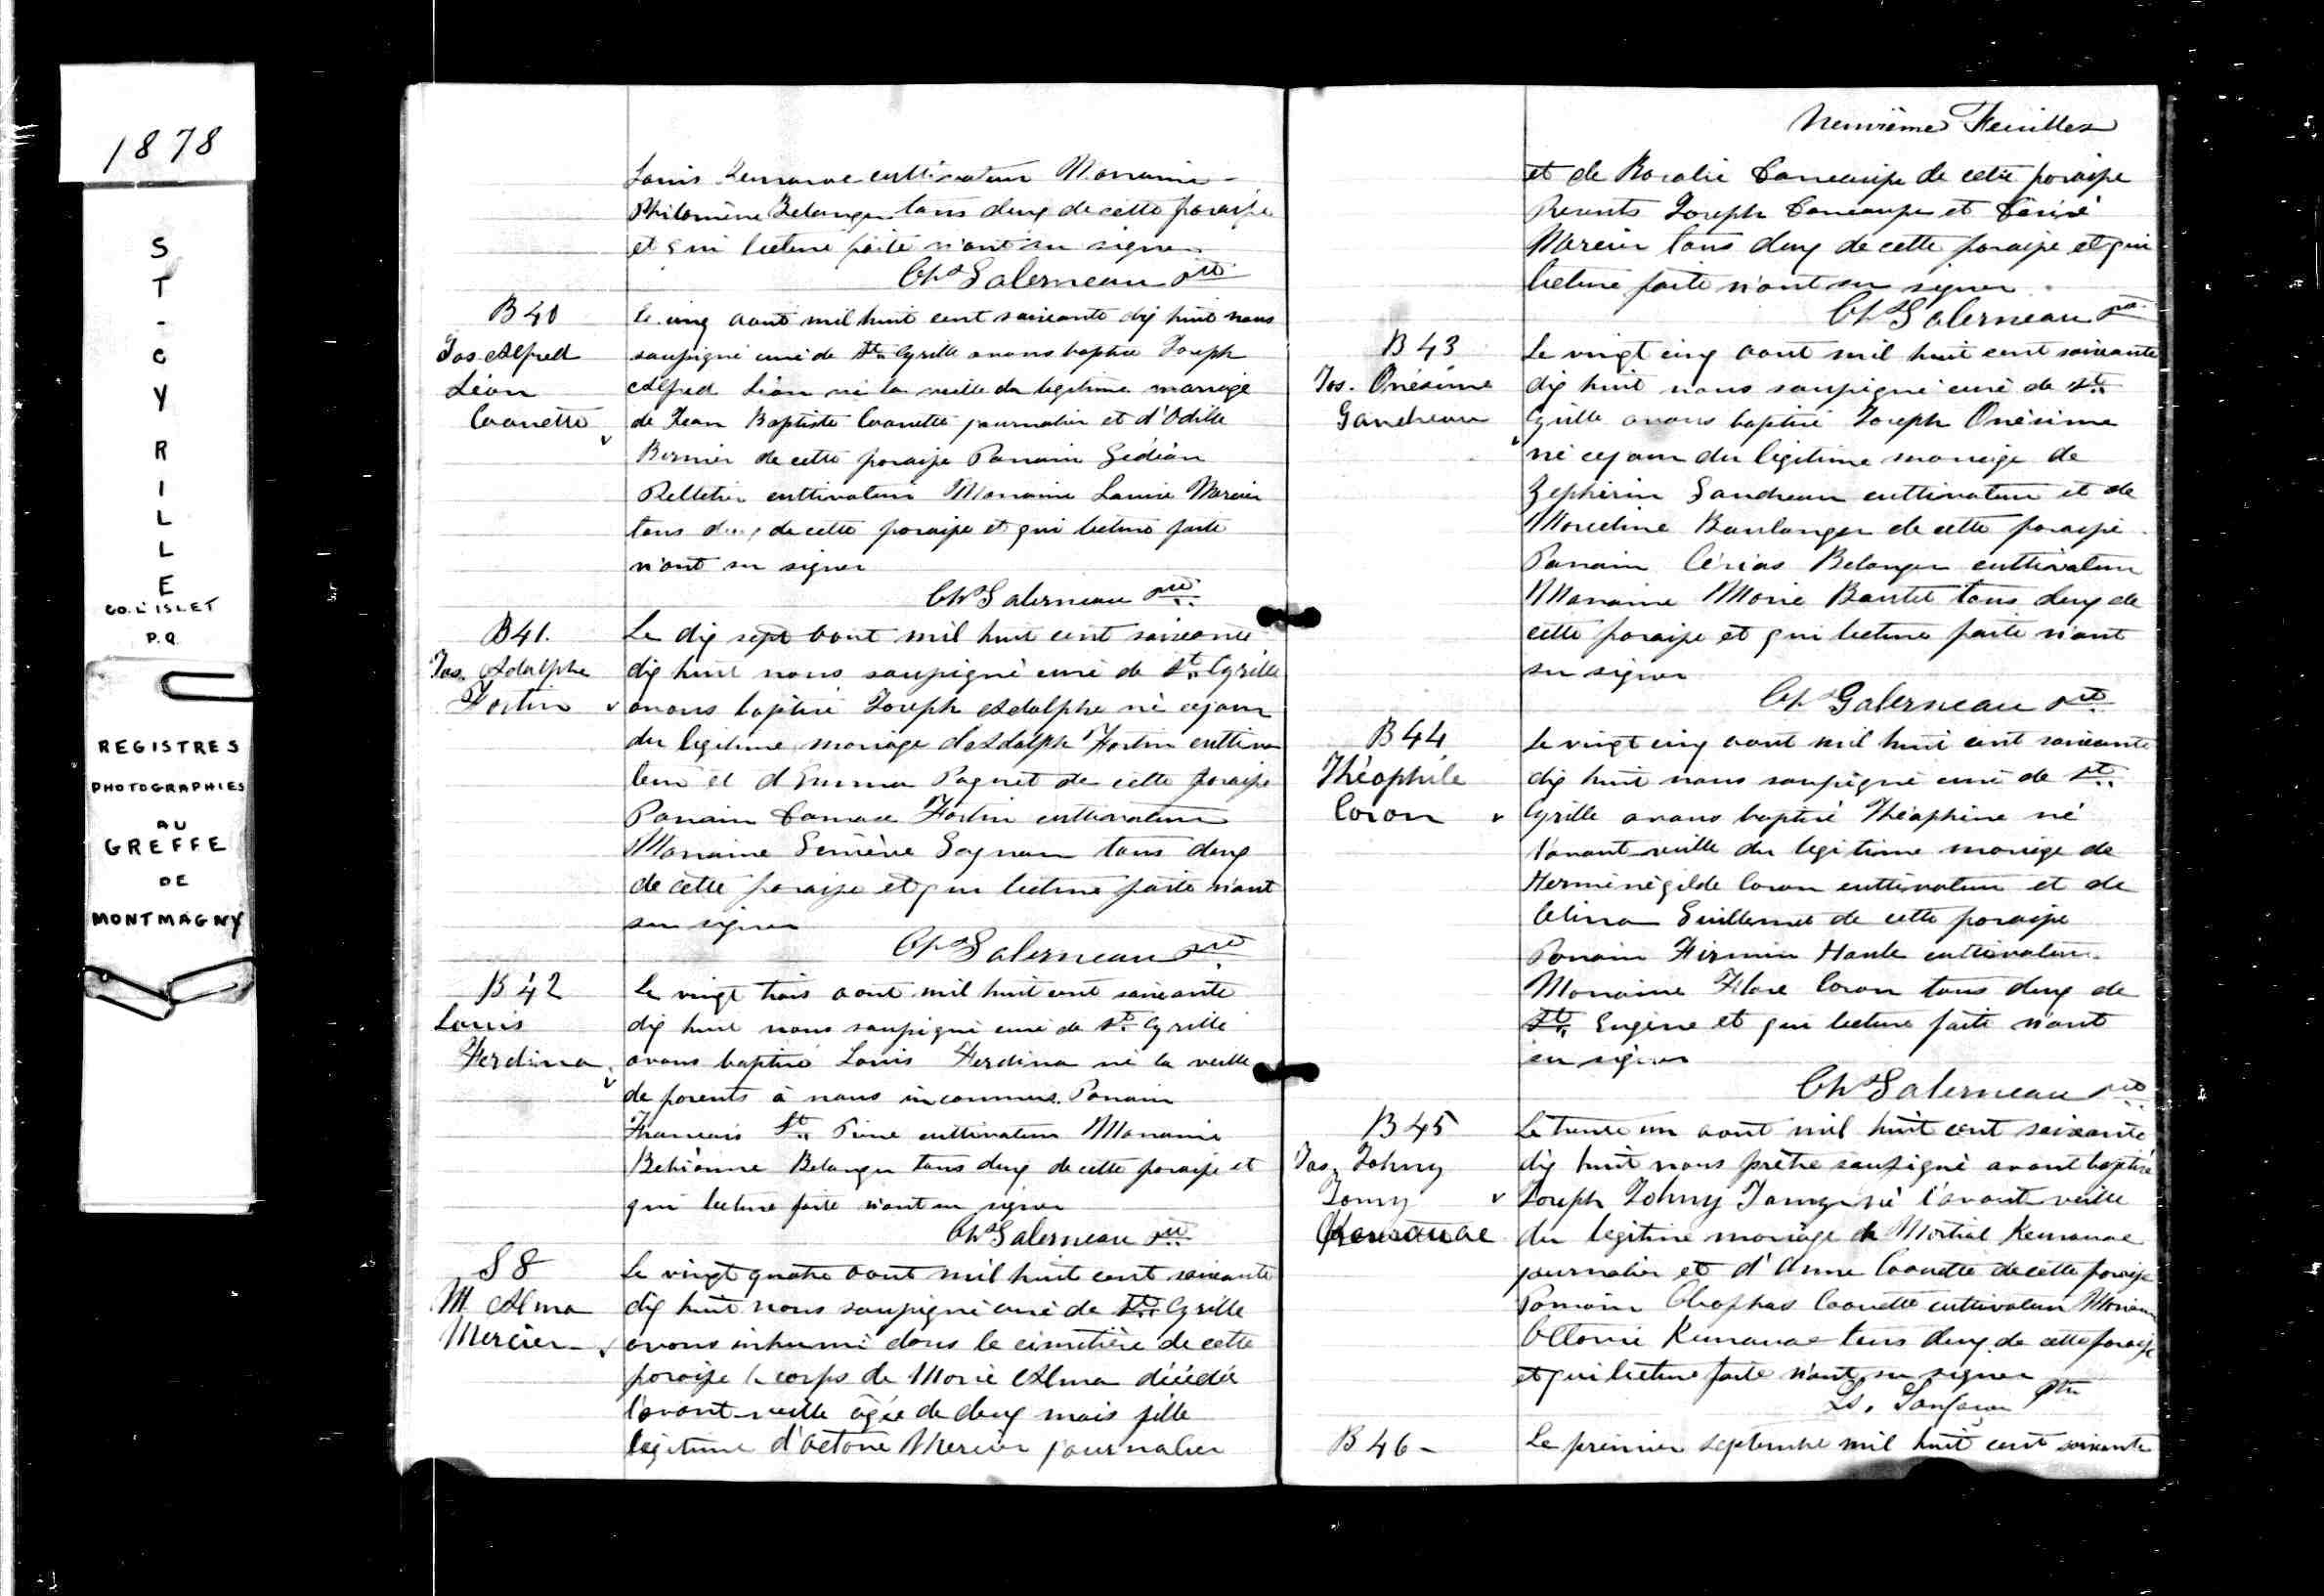 1878
S
T
-
C
Y
R
I
L
L
E
CO. L'ISLET
P.Q.
REGISTRES
PHOTOGRAPHIES
AU
GREFFE
DE
MONTMAGNY
Louis Keuraoac cultivateur Marraine
Philomène Belanger tous deux de cette paroisse
et qui lecture faite n'ont su signer
Chs Galerneau ptre
B 40
Jos Alfred
Léon
Caouette
Le cinq aout mil huit cent soixante dix huit nous
soussigné curé de St. Cyrille avons baptisé Joseph
Alfred Léon né la veille du legitime mariage
de Jean Baptiste Caouette journalier et d'Odille
Bernier de cette paroisse Parrain Gédéon
Pelletier cultivateur Marraine Louise Mercier
tous deux de cette paroisse et qui lecture faite
n'ont su signer
Chs Galerneau ptre
B 41.
Jos. Adolphe
Fortin
Le dix sept aout mil huit cent soixante
dix huit nous soussigné curé de St. Cyrille
avons baptisé Joseph Adolphe né ce jour
du legitime mariage d'Adolph Fortin cultiva
teur et d'Emma Paquet de cette paroisse
Parrain Fortin cultivateur
Marraine Gagnon tous deux
de cette paroisse et qui lecture faite n'ont
su signer
Chs Galerneau ptre
B 42
Louis
Ferdina
Le vingt trois aout mil huit cent soixante
dix huit nous soussigné curé de St. Cyrille
avons baptisé Louis Ferdina né la veille
de parents à nous inconnus. Parrain
Francois St. Pierre cultivateur Marraine
Belanger tous deux de cette paroisse et
qui lecture faite n'ont su signer
Chs Galerneau ptre
S 8
M. Alma
Mercier
Le vingt quatre aout mil huit cent soixante
dix huit nous soussigné curé de St. Cyrille
avons inhumé dans le cimetière de cette
paroisse le corps de Marie Alma décédée
l'avant-veille âgée de deux mois fille
legitime d'Octave Mercier journalier
Neuvième Feuillet
et de Rosalie de cette paroisse
Presents Joseph et
Mercier tous deux de cette paroisse et qui
lecture faite n'ont su signer
Chs Galerneau ptre
B 43
Jos. Onésime
Gaudreau
Le vingt cinq aout mil huit cent soixante
dix huit nous soussigné curé de St.
Cyrille avons baptisé Joseph Onésime
né ce jour du légitime mariage de
Zephirin Gaudreau cultivateur et de
Marceline Boulanger de cette paroisse
Parrain Belanger cultivateur
Marraine Marie Boutet tous deux de
cette paroisse et qui lecture faite n'ont
su signer
Chs Galerneau ptre
B 44
Théophile
Caron
Le vingt cinq aout mil huit cent soixante
dix huit nous soussigné curé de St.
Cyrille avons baptisé Théophine né
l'avant-veille du legitime mariage de
Herménégilde Caron cultivateur et de
Celina Guillemet de cette paroisse
Parrain Firmin cultivateur
Marraine Flore Caron tous deux de
St. Eugène et qui lecture faite n'ont
su signer
Chs Galerneau ptre
B 45
Jos. Johny
Tomy
Le trente un aout mil huit cent soixante
dix huit nous prêtre soussigné avont baptisé
Joseph Johny Tomy né l'avant veille
du legitime mariage de Martial Keuraoac
journalier et d'Anne Caouette de cette paroisse
Parrain Cleophas Caouette cultivateur
Keuraoac tous deux de cette paroisse
et qui lecture faite n'ont su signer
Ls. Sanfaçon Ptre
B 46 -
Le premier septembre mil huit cent soixante